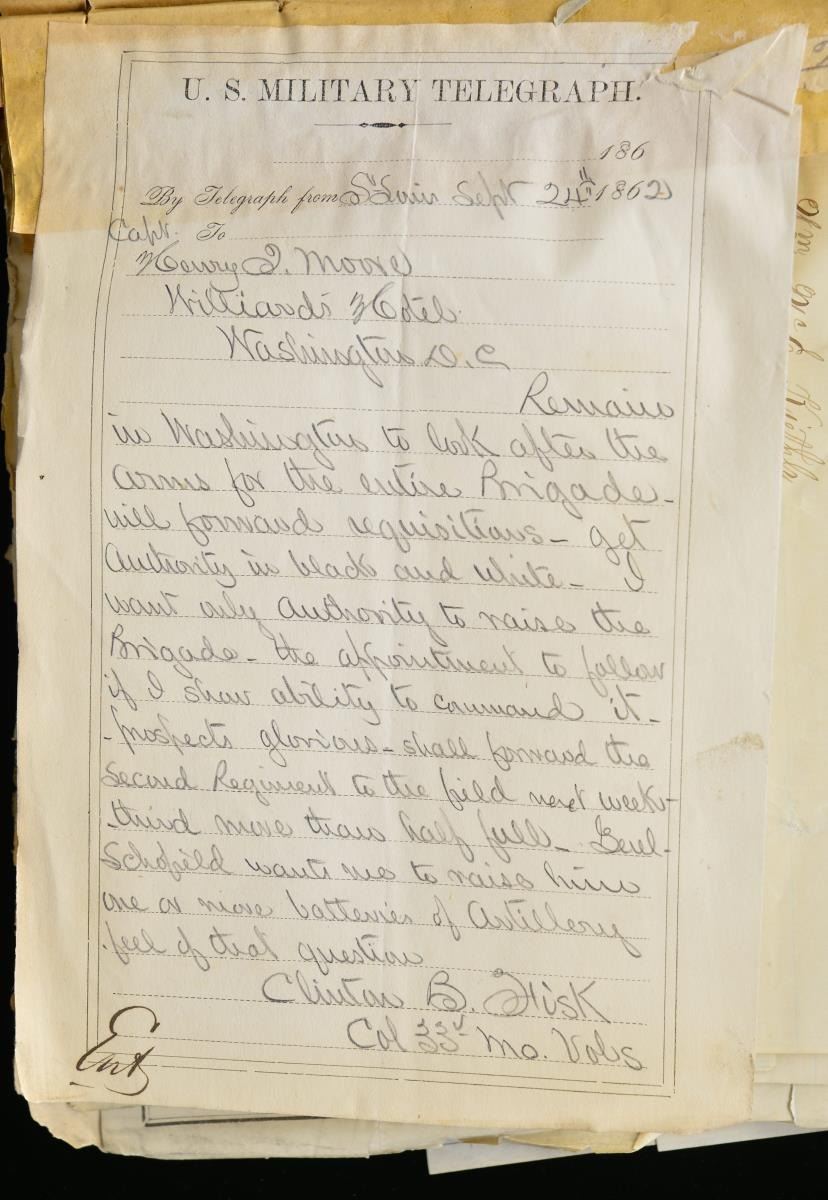 U. S. MILITARY TELEGRAPH.
186
By Telegraph from St Louis Sept 24th 1862
Capt. To
Henry I. Moore
Williards Hotel
Washington D.C
Remain
in Washington to look after the
arms for the entire Brigade -
will forward requisitions - get
Authority in black and white - I
want only Authority to raise the
Brigade - the appointment to follow
if I show ability to command it -
- prospects glorious - shall forward the
Second Regiment to the field next week -
third more than half full - Genl -
Schofield wants me to raise him
one or more batteries of Artillery
feel of that question
Clinton B. Fisk
Col 33d Mo. Vols